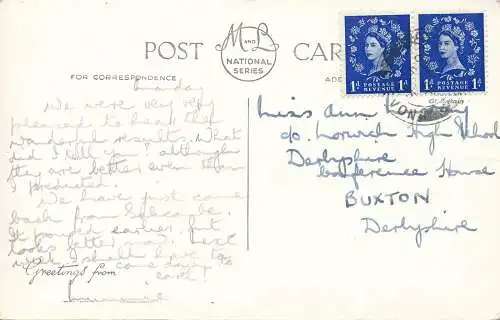 POST CARD
M AND L
NATIONAL
SERIES
FOR CORRESPONDENCE
1D POSTAGE REVENUE 1D
1D POSTAGE REVENUE 1D
Monday
We were very very
pleased to hear the
wonderful results. What
did I tell you? although
they are better even than
I predicted.
We have just come
back from
It poured earlier, but
looks better now. Next
week I shall have to
come down to
earth!
Greetings from
Miss Ann
c/o. Norwich High School
Derbyshire
Conference House
BUXTON
Derbyshire